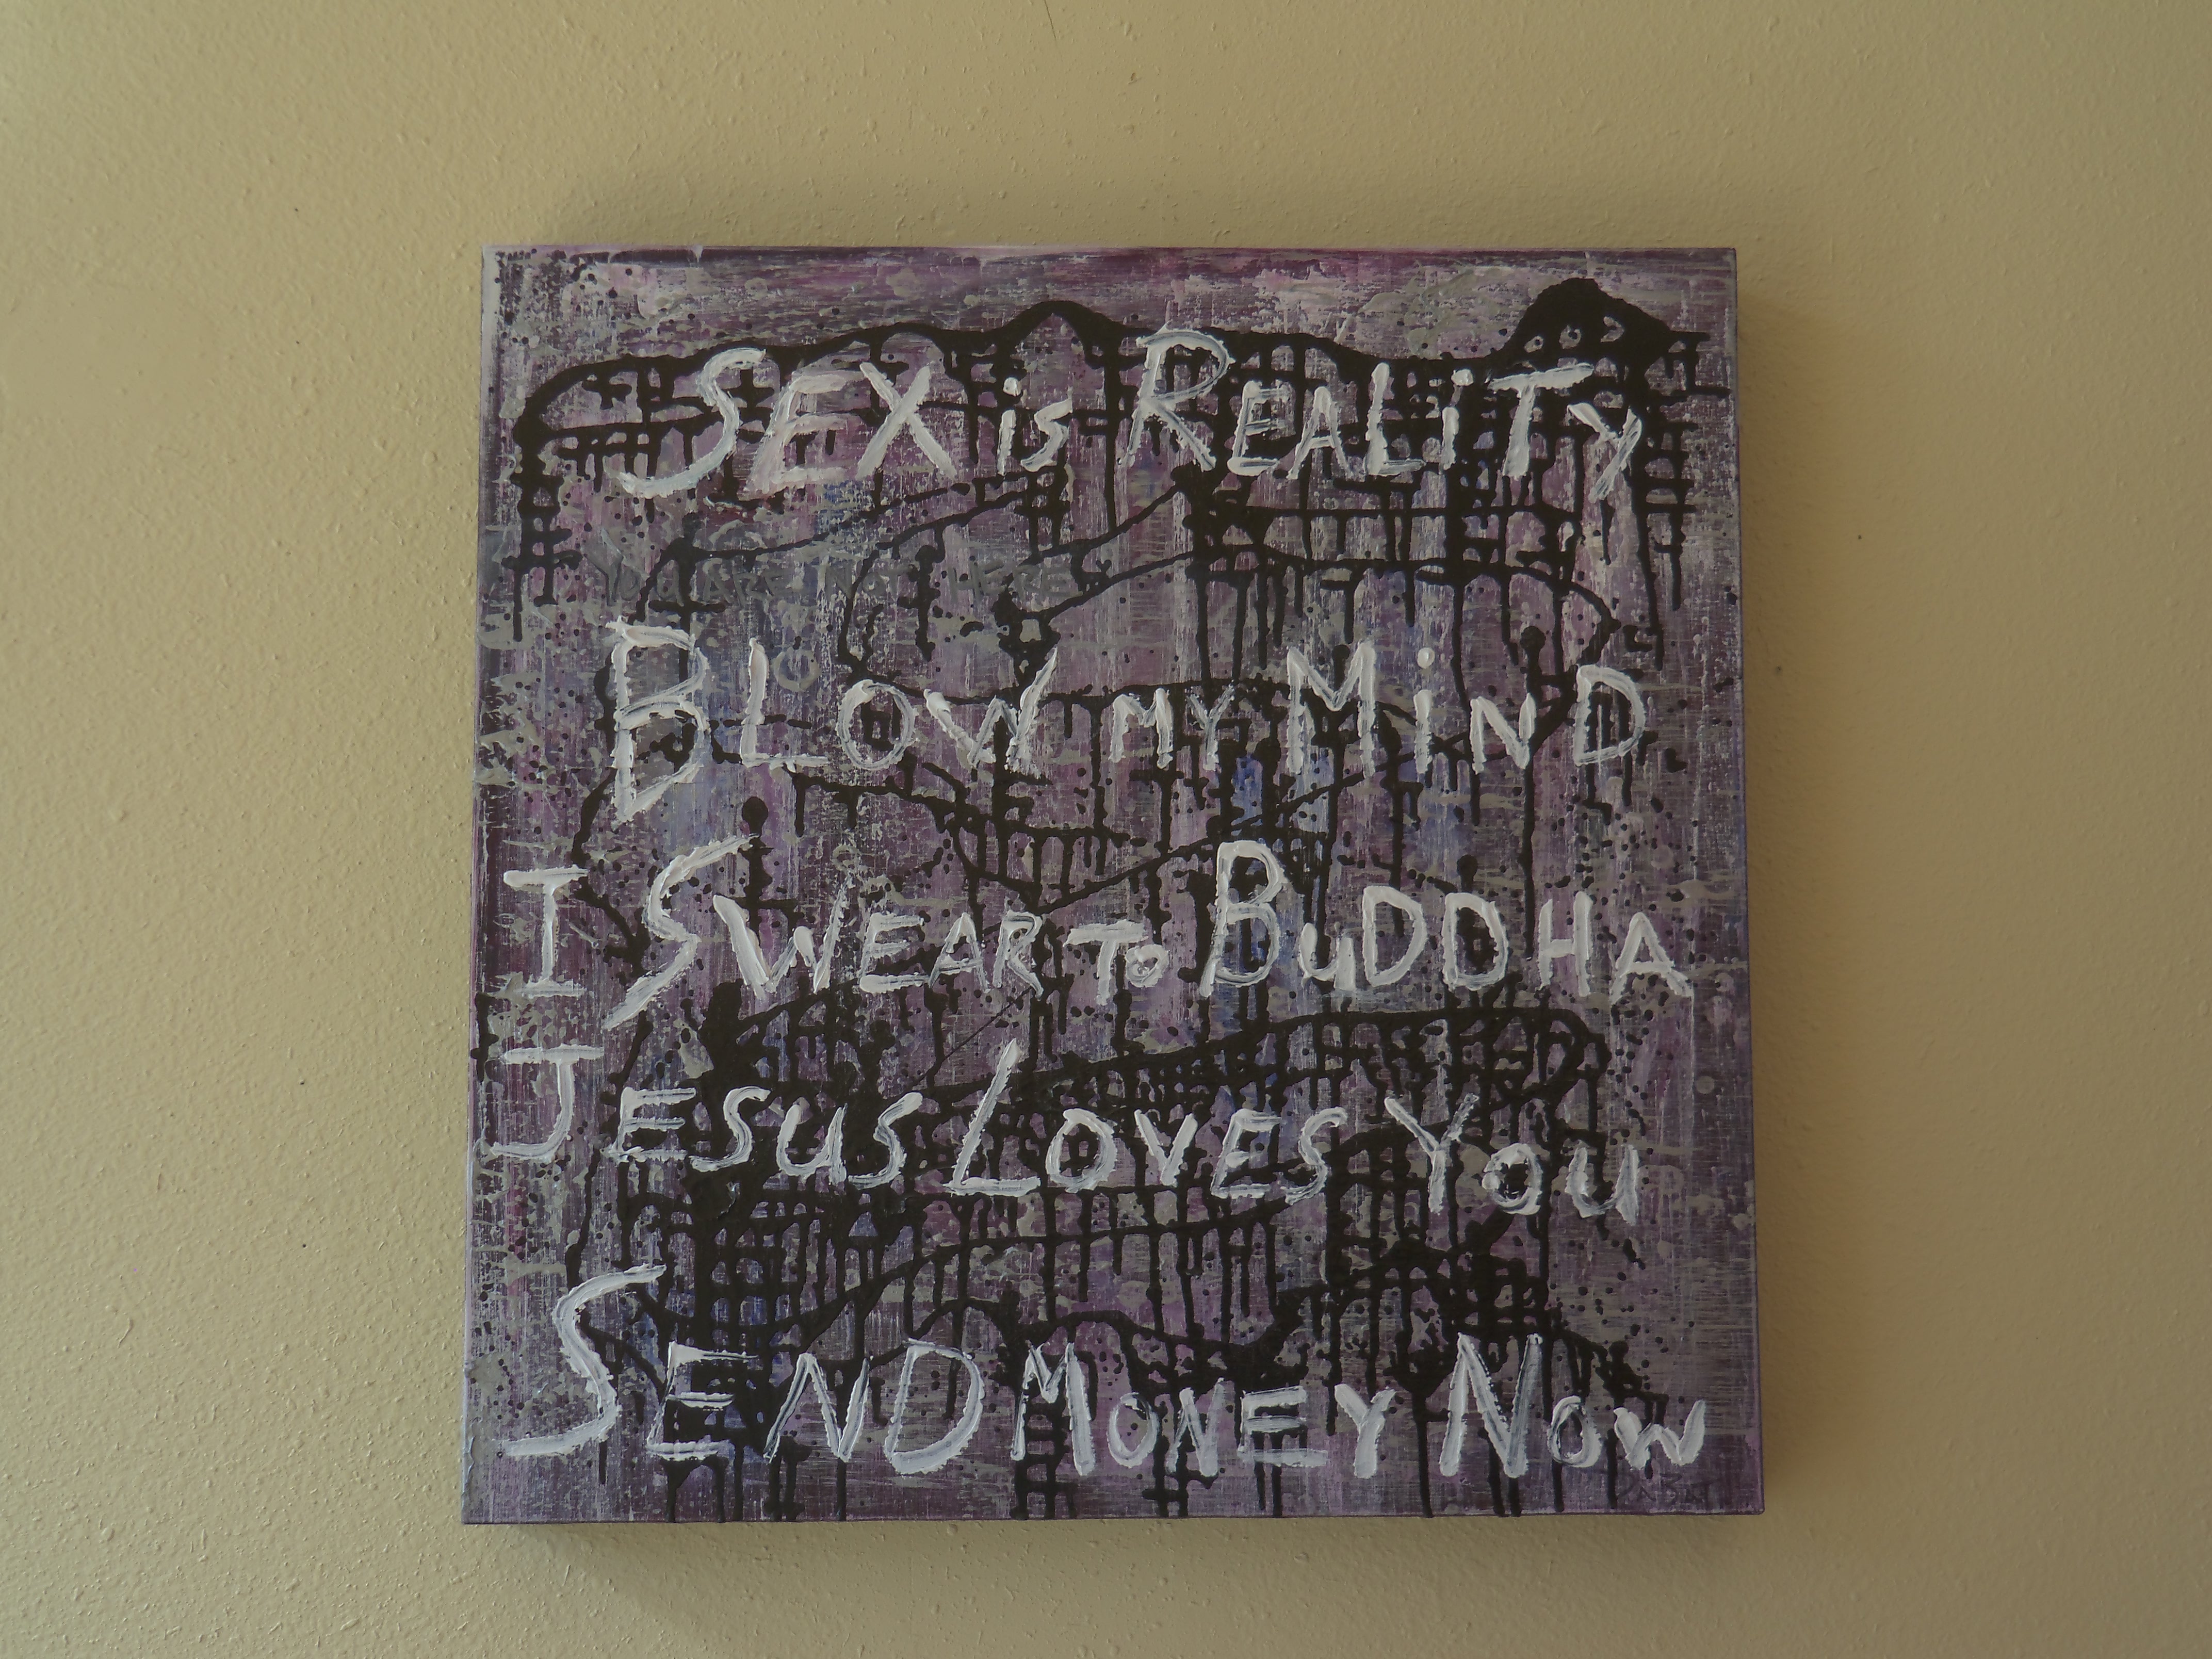 SEX is REALiTy
YOU ARE NOT HERE
BLOW MY MiND
I SWEAR TO BuDDHA
JESUS LOVES YOU
SEND MONEY NOW